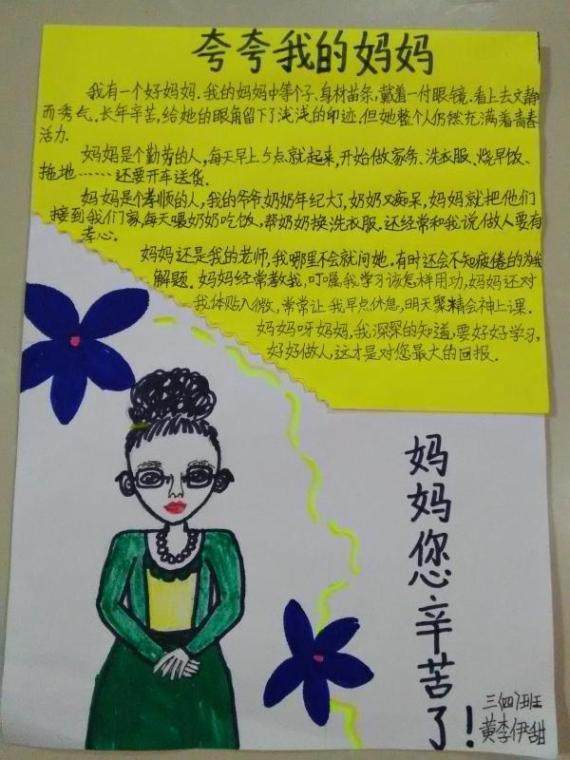 夸夸我的妈妈
我有一个好妈妈.我的妈妈中等个子、身材苗条,戴着一付眼镜.看上去文静
而秀气.长年辛苦,给她的眼角留下了浅浅的印迹.但她整个人仍然充满着青春
活力.
妈妈是个勤劳的人,每天早上5点就起来,开始做家务、洗衣服、烧早饭、
拖地……还要开车送货.
妈妈是个孝顺的人,我的爷爷奶奶年纪大了,奶奶又痴呆,妈妈就把他们
接到我们家,每天喂奶奶吃饭,帮奶奶换洗衣服.还经常和我说做人要有
孝心.
妈妈还是我的老师,我哪里不会就问她.有时还会不知疲倦的为我
解题.妈妈经常教我,叮嘱我学习该怎样用功,妈妈还对
我体贴入微,常常让我早点休息,明天聚精会神上课.
妈妈呀妈妈,我深深的知道,要好好学习,
好好做人,这才是对您最大的回报.
妈妈您辛苦了!
三(四)班
黄李伊甜